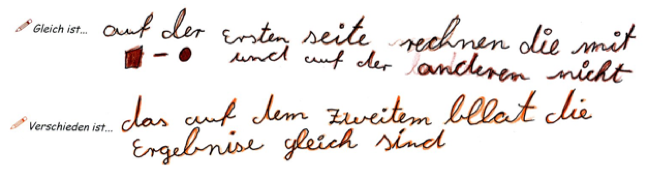 Gleich ist... auf der ersten seite rechnen die mit
■ - ● und auf der anderen nicht
Verschieden ist... das auf dem zweitem bllat die
Ergebnise gleich sind